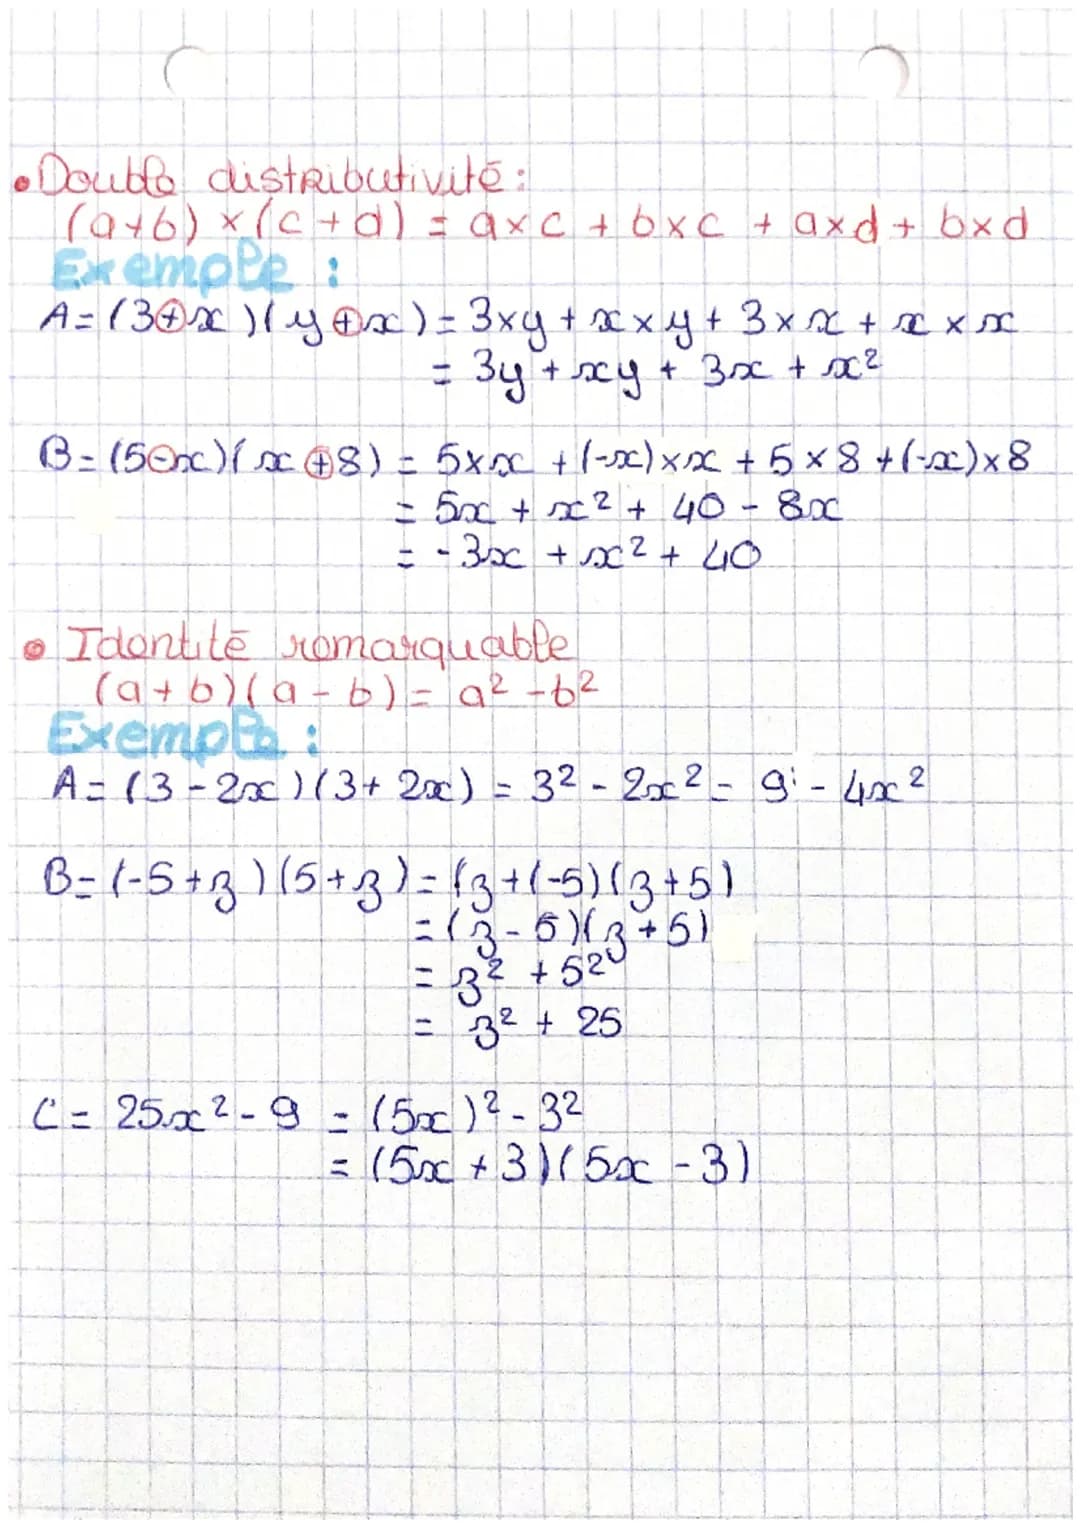 • Double distributivité :
(a+b) × (c+d) = a×c + b×c + a×d + b×d
Exemple :
A= (3+x)(y+x) = 3×y + x×y + 3×x + x×x
= 3y + xy + 3x + x²
B= (5-x)(x+8) = 5×x + (-x)×x + 5×8 + (-x)×8
= 5x + x² + 40 - 8x
= -3x + x² + 40
• Identité remarquable
(a+b)(a-b) = a² - b²
Exemple :
A= (3-2x)(3+2x) = 3² - 2x² = 9 - 4x²
B= (-5+z)(5+z) = (z+(-5)(z+5)
= (z-5)(z+5)
= z² + 5²
= z² + 25
C= 25x² - 9 = (5x)² - 3²
= (5x+3)(5x-3)